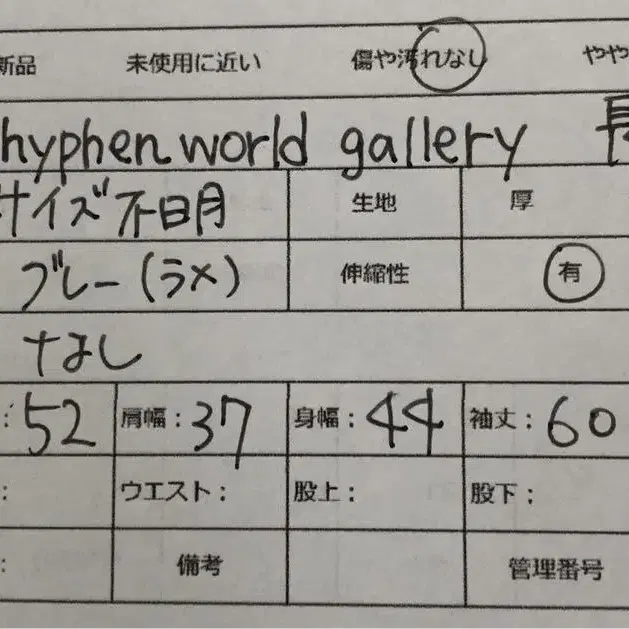 新品 未使用に近い 傷や汚れなし やや
hyphen world gallery 長
サイズ不明 生地 厚
ブルー(ラメ) 伸縮性 有
なし
: 52 肩幅: 37 身幅: 44 袖丈: 60
: ウエスト: 股上: 股下:
: 備考 管理番号